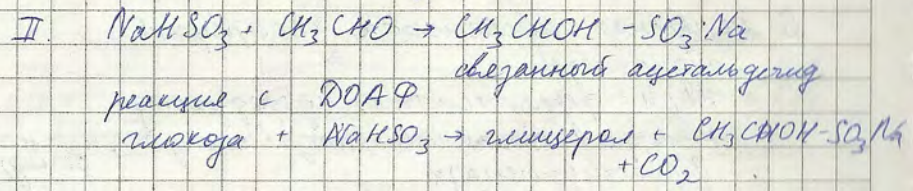 II. NaHSO₃ + CH₃CHO → CH₃CHOH - SO₃·Na
связанный ацетальдегид
реакция с DOАФ
глюкоза + NaHSO₃ → глицерол + CH₃CHOH-SO₃Na
+ CO₂